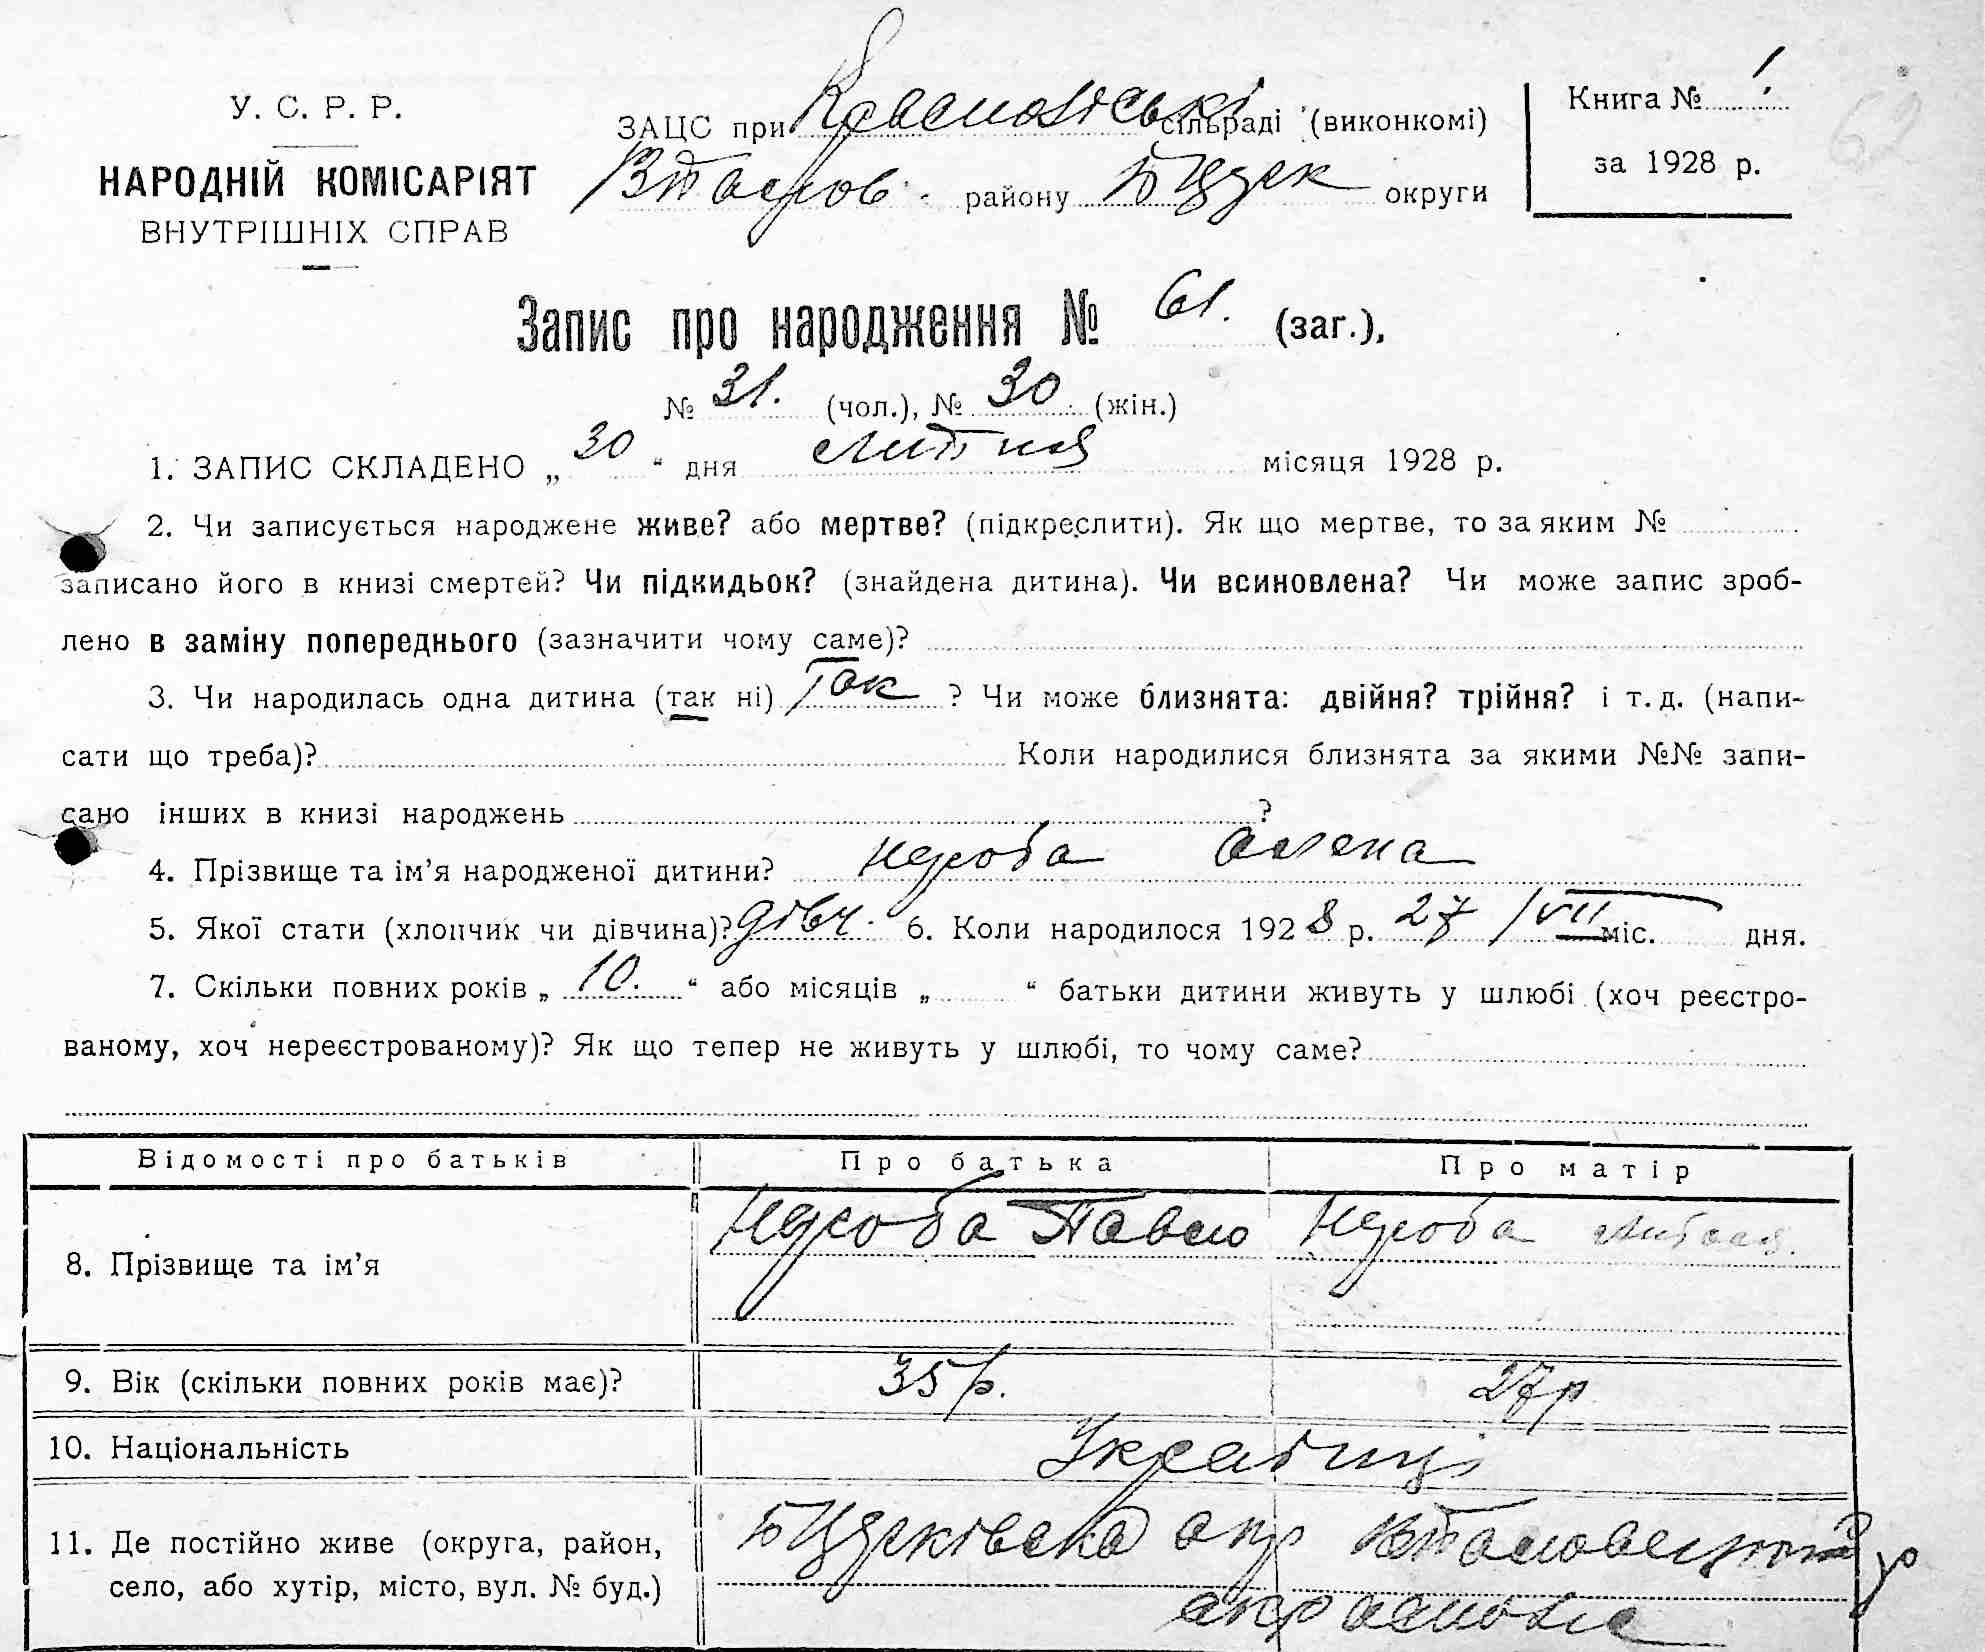 У. С. Р. Р.
НАРОДНІЙ КОМІСАРІЯТ
ВНУТРІШНІХ СПРАВ
ЗАЦС при сільраді (виконкомі)
району Б Церк округи
Книга № 1
за 1928 р.
62
Запис про народження № 61. (заг.),
№ 31. (чол.), № 30 (жін.)
1. ЗАПИС СКЛАДЕНО „ 30 “ дня липня місяця 1928 р.
2. Чи записується народжене живе? або мертве? (підкреслити). Як що мертве, то за яким №
записано його в книзі смертей? Чи підкидьок? (знайдена дитина). Чи всиновлена? Чи може запис зроб-
лено в заміну попереднього (зазначити чому саме)?
3. Чи народилась одна дитина (так ні) Так ? Чи може близнята: двійня? трійня? і т. д. (напи-
сати що треба)? Коли народилися близнята за якими №№ запи-
сано інших в книзі народжень ?
4. Прізвище та ім’я народженої дитини? Нероба Олена
5. Якої стати (хлопчик чи дівчина)? дівч. 6. Коли народилося 1928 р. 27/VII міс. дня.
7. Скільки повних років „ 10. “ або місяців „ “ батьки дитини живуть у шлюбі (хоч реєстро-
ваному, хоч нереєстрованому)? Як що тепер не живуть у шлюбі, то чому саме?
Відомості про батьків Про батька Про матір
8. Прізвище та ім’я Нероба Павло Нероба
9. Вік (скільки повних років має)? 35 р. 27 р
10. Національність Українці
11. Де постійно живе (округа, район, Б Церківська окр
село, або хутір, місто, вул. № буд.)